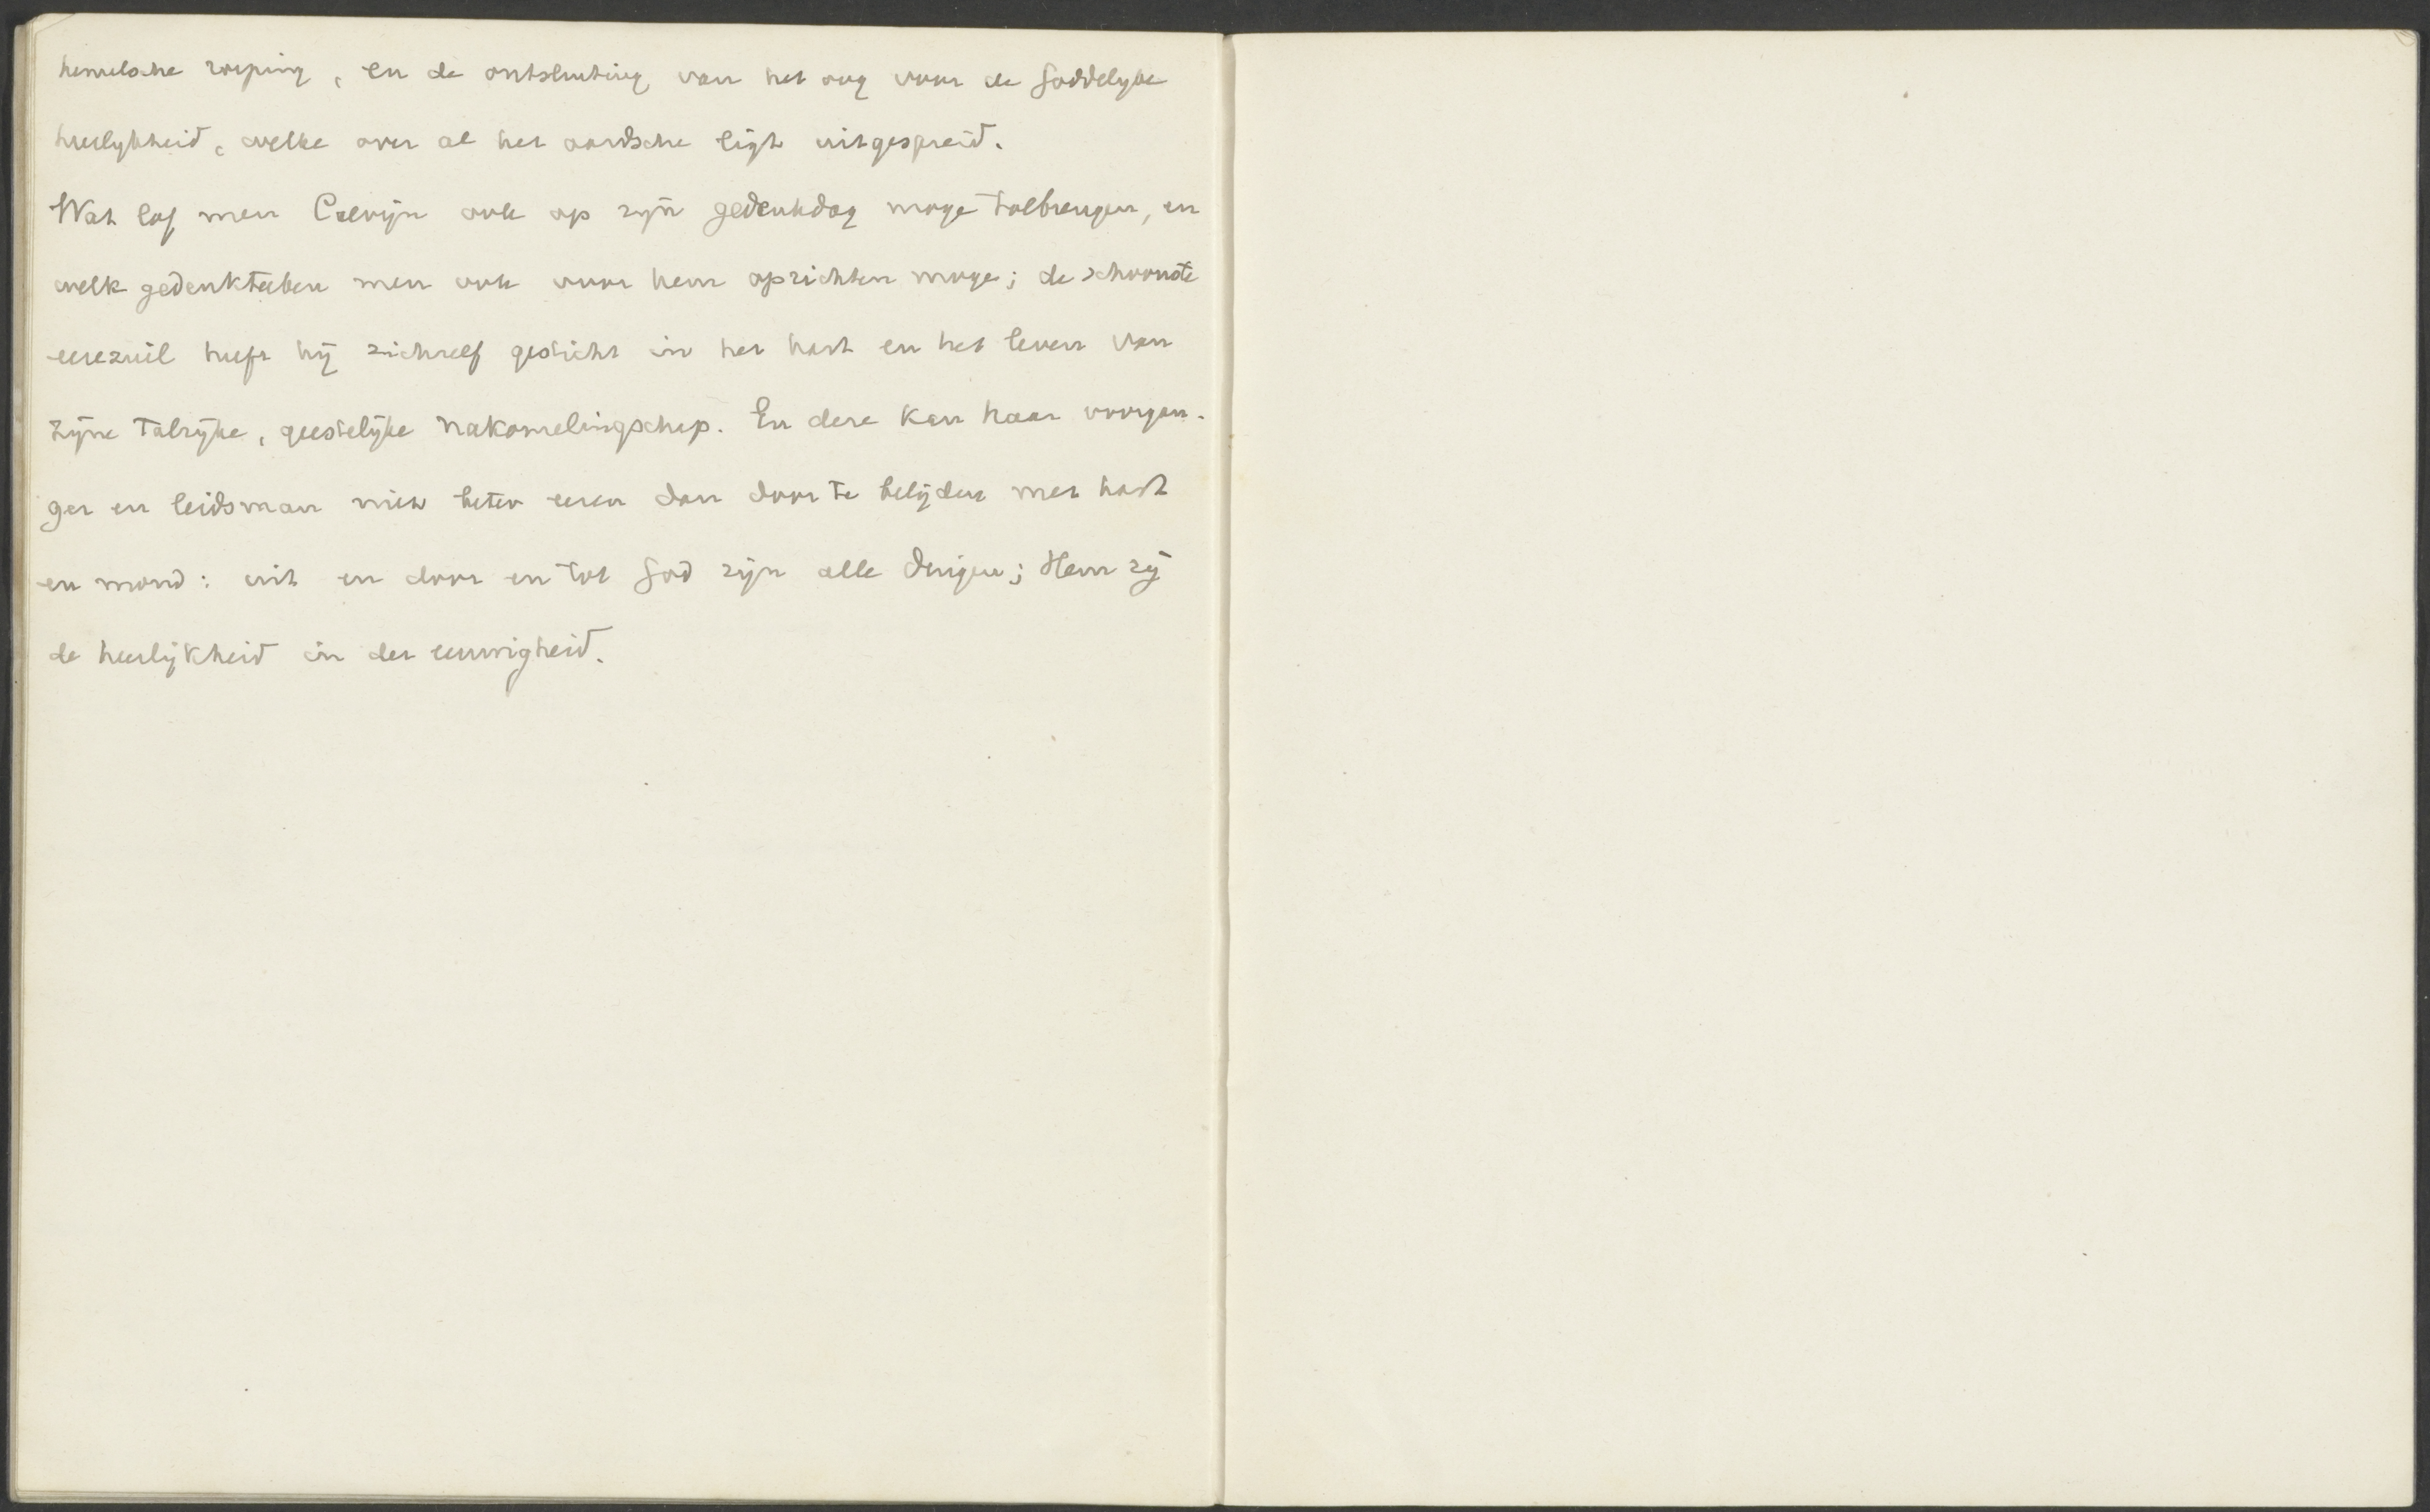 hemelsche roeping, en de ontsluiting van het oog voor de Goddelyke
heerlykheid, welke over al het aardsche ligt uitgespreid.
Wat lof men Calvijn ook op zijn gedenkdag moge toebrengen, en
welk gedenkteeken men ook voor hem oprichten moge; de schoonste
eerezuil heeft hij zichzelf gesticht in het hart en het leven van
zijne talrijke, geestelijke nakomelingschap. En deze kan haar voorgan-
ger en leidsman niet beter eeren dan door te belijden met hart
en mond: uit en door en tot God zijn alle dingen; Hem zij
de heerlijkheid in der eeuwigheid.